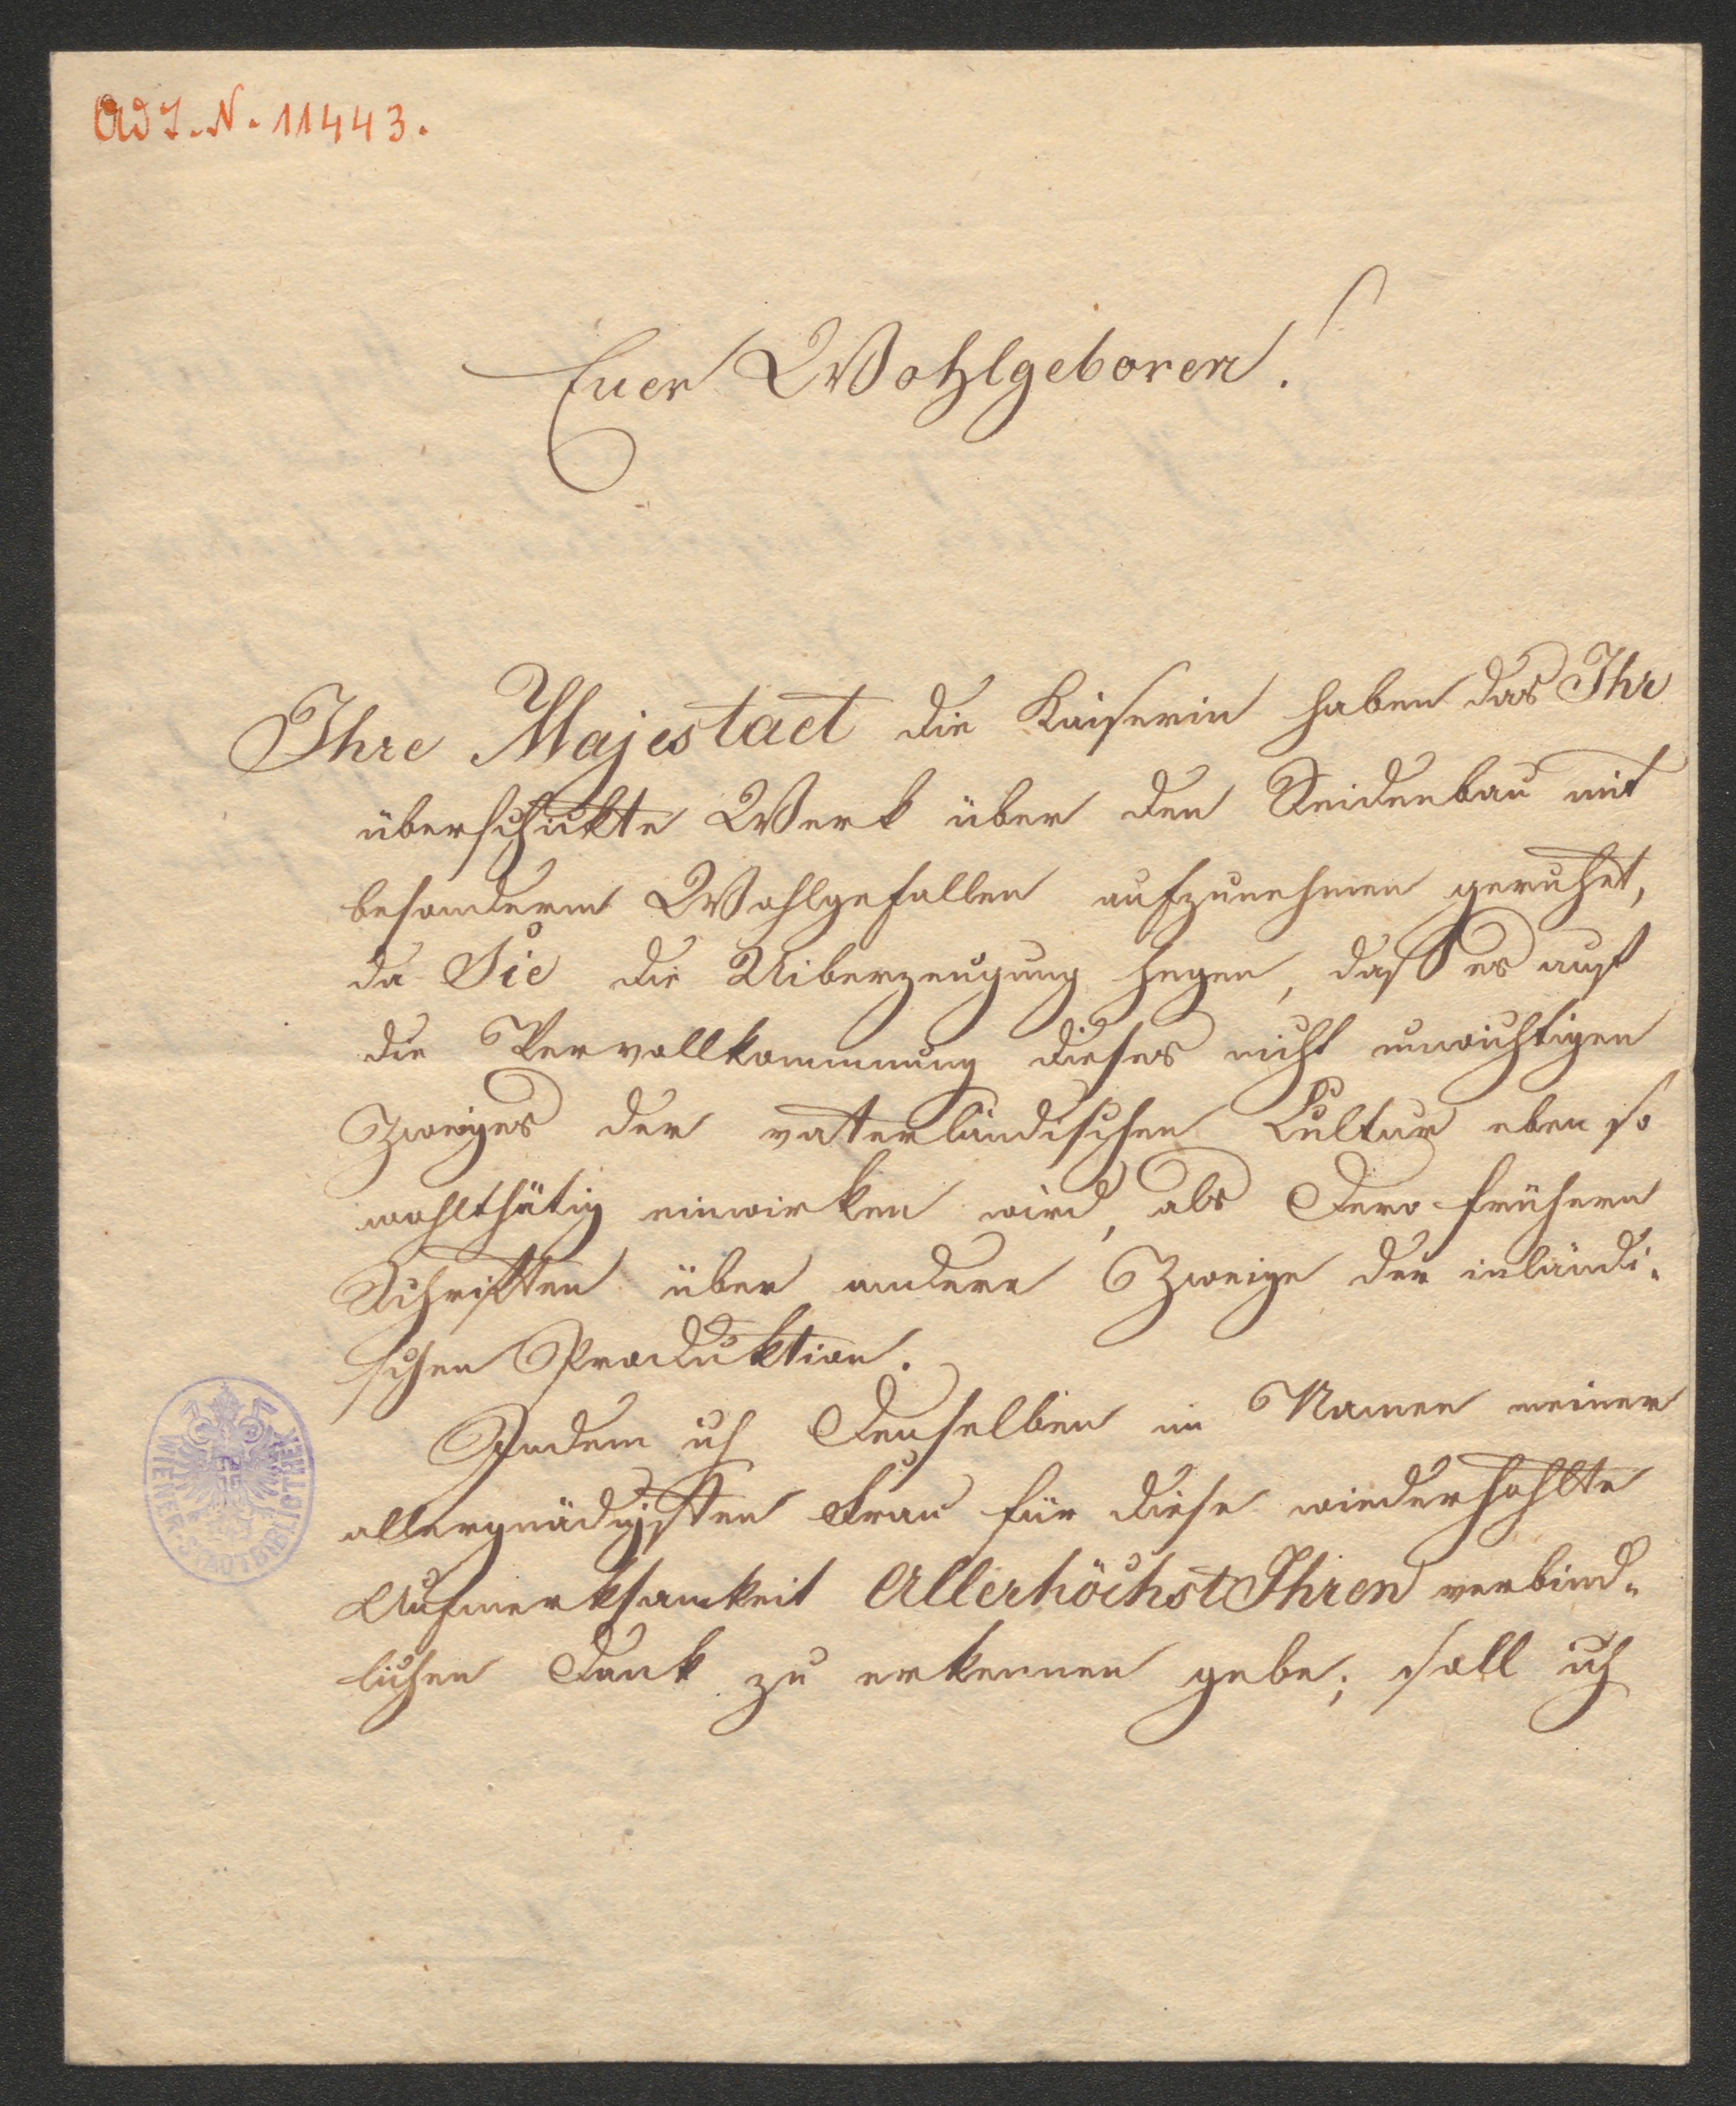 Ad J. N. 11443.
Euer Wohlgeboren!
Ihre Majestaet die Kaiserin haben das Ihr
überschickte Werk über den Seidenbau mit
besonderm Wohlgefallen aufzunehmen geruhet,
da Sie die Uiberzeugung hegen, daß es auf
die Vervollkommnung dieses nicht unwichtigen
Zweiges der vaterländischen Cultur eben so
wohlthätig einwirken wird, als Dero frühern
Schriften über andere Zweige der inländi-
schen Produktion.
Indem ich Denselben im Namen meiner
allergnädigsten Frau für diese wiederhohlte
Aufmerksamkeit Allerhöchst Ihren verbind-
lichen Dank zu erkennen gebe; soll ich
WIENER-STADTBIBLIOTHEK